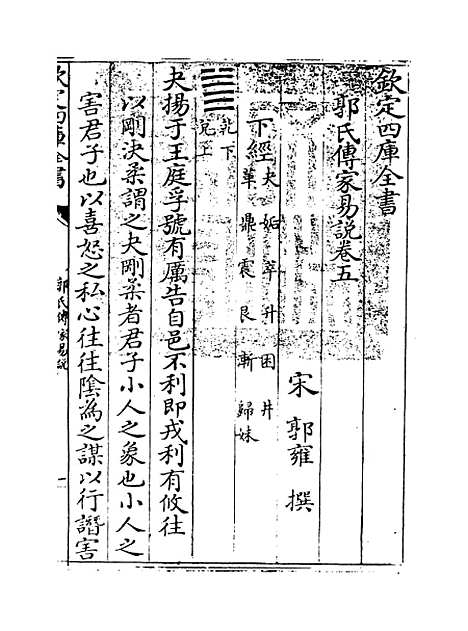 欽定四庫全書
郭氏傳家易說卷五
宋 郭雍 撰
下經 夬 姤 萃 升 困 井
革 鼎 震 艮 漸 歸妹
乾下
兌上
夬揚于王庭孚號有厲告自邑不利即戎利有攸往
以剛決柔謂之夬剛柔者君子小人之象也小人之
害君子也以喜怒之私心往往陰為之謀以行譖害
欽定四庫全書
郭氏傳家易說
一